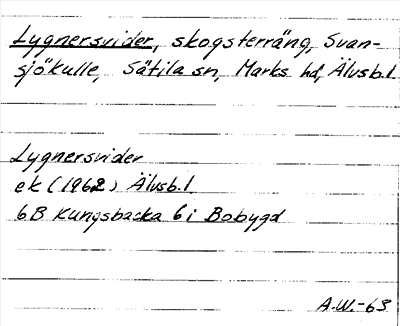 Lygnersvider, skogsterräng, Svan-
sjökulle, Sätila sn, Marks hd, Älvsb.l.
Lygnersvider
ek (1962) Älvsb.l.
6B Kungsbacka 6i Bobygd
A.W.-63